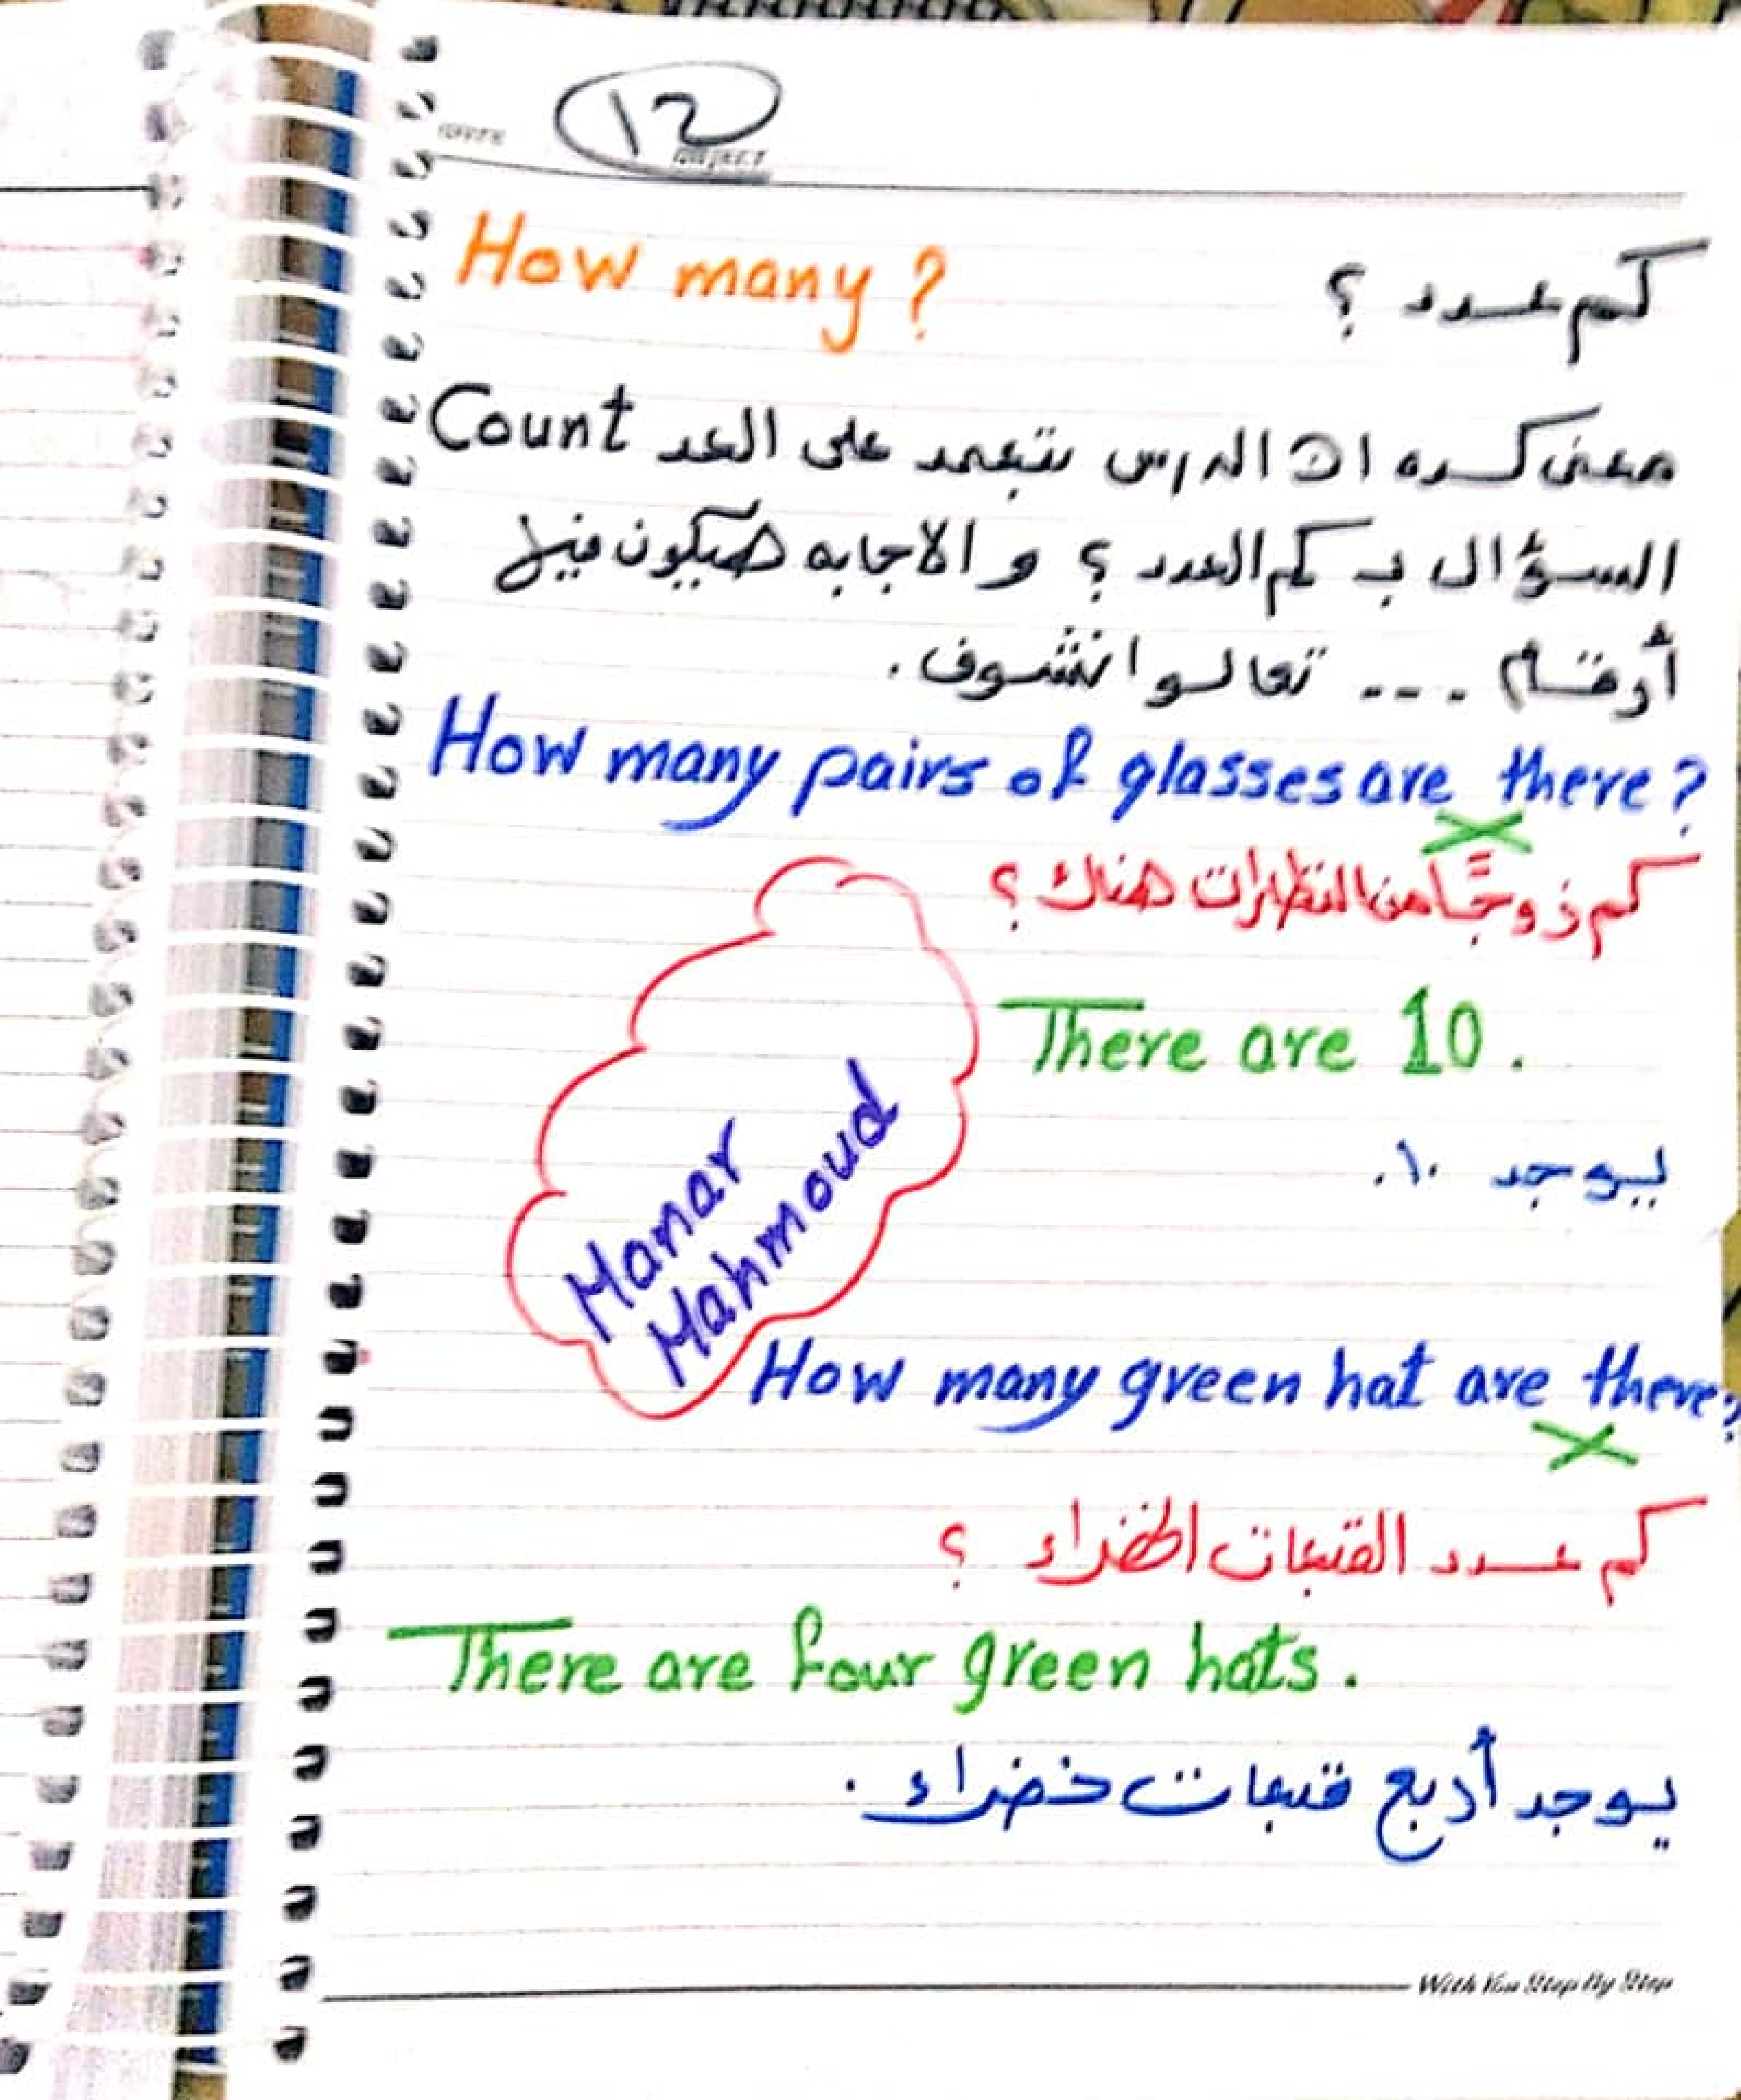 12
SUBJECT
How many? كم عدد ؟
معنى كده ان الدرس بتعمد على العد Count
السؤال بـ كم العدد ؟ و الاجابه هيكون فيها
أرقام --- تعالوا نشوف.
How many pairs of glasses are there?
كم زوجًا من النظارات هناك ؟
There are 10.
يوجد ١٠.
Manar
Mahmoud
How many green hat are there?
كم عدد القبعات الخضراء ؟
There are four green hats.
يوجد أربع قبعات خضراء.
With You Step By Step